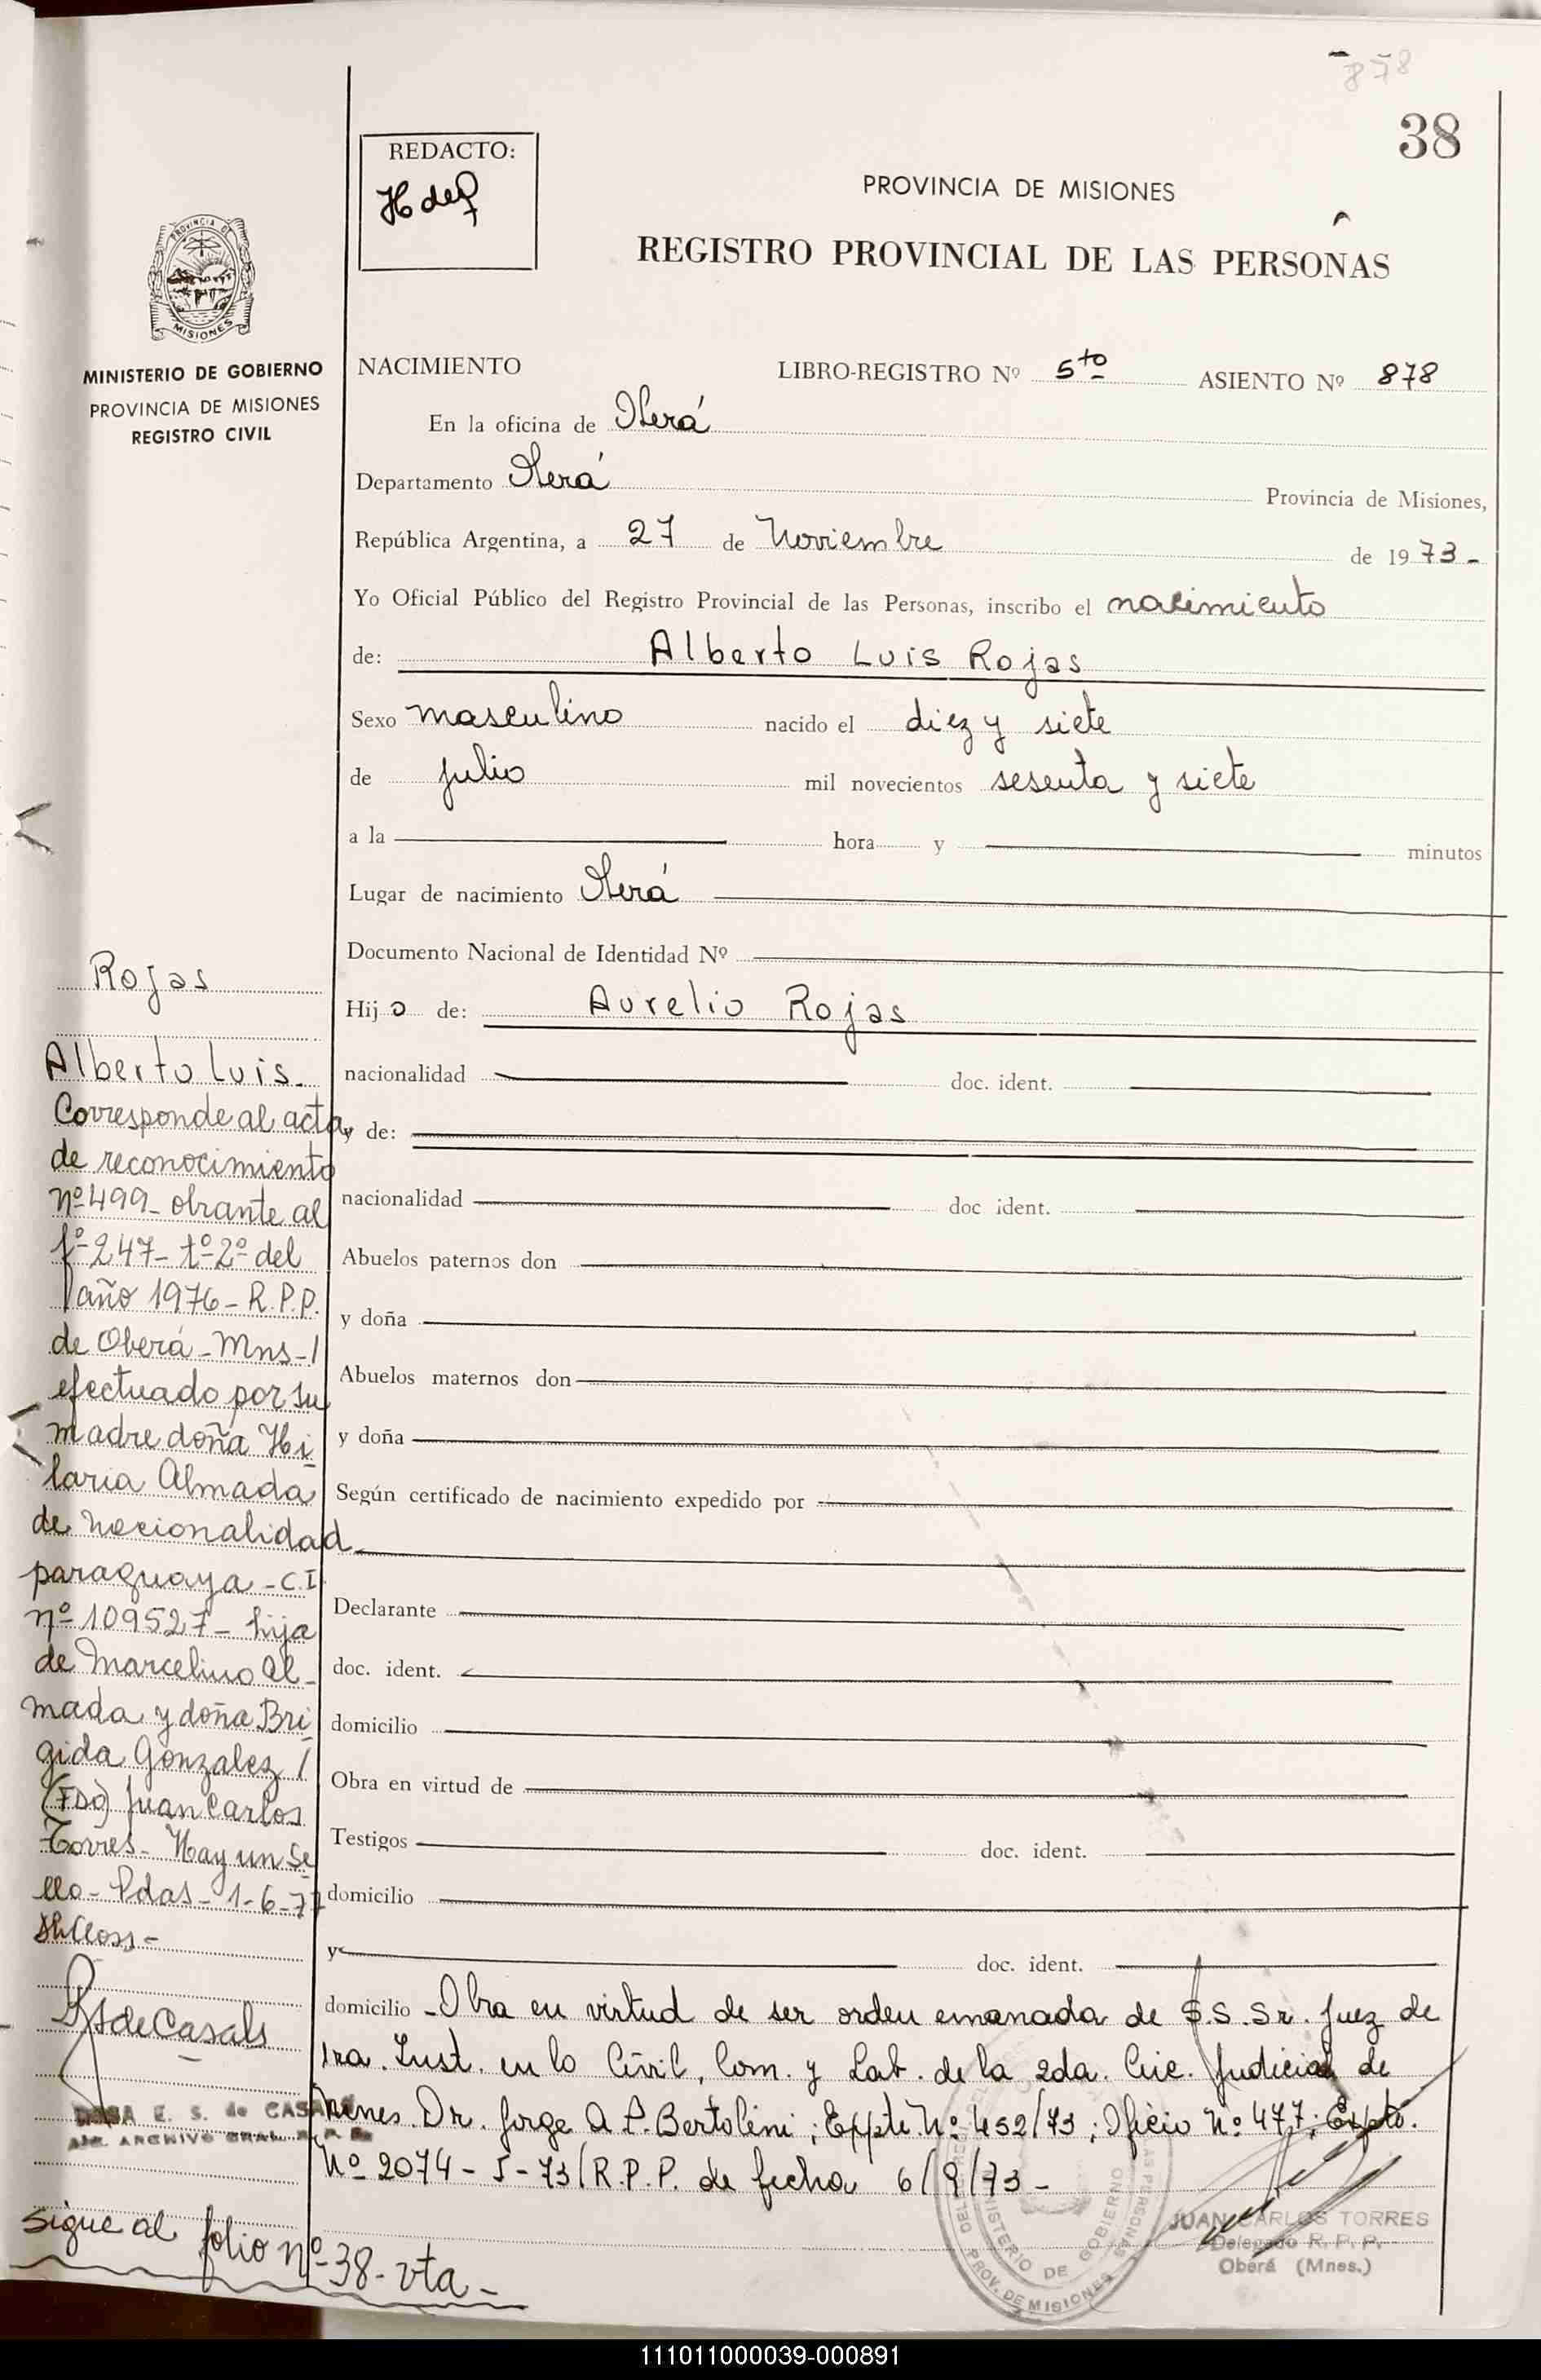 878
38
REDACTO:
PROVINCIA DE MISIONES
REGISTRO PROVINCIAL DE LAS PERSONAS
PROVINCIA DE
MISIONES
MINISTERIO DE GOBIERNO
PROVINCIA DE MISIONES
REGISTRO CIVIL
NACIMIENTO LIBRO-REGISTRO Nº 5to ASIENTO Nº 878
En la oficina de Oberá
Departamento Oberá Provincia de Misiones,
República Argentina, a 27 de Noviembre de 1973-
Yo Oficial Público del Registro Provincial de las Personas, inscribo el nacimiento
de: Alberto Luis Rojas
Sexo masculino nacido el diez y siete
de julio mil novecientos sesenta y siete
a la hora y minutos
Lugar de nacimiento Oberá
Documento Nacional de Identidad Nº
Hijo de: Aurelio Rojas
nacionalidad doc. ident.
y de:
nacionalidad doc ident.
Abuelos paternos don
y doña
Abuelos maternos don
y doña
Según certificado de nacimiento expedido por
Declarante
doc. ident.
domicilio
Obra en virtud de
Testigos doc. ident.
domicilio
y doc. ident.
domicilio - Obra en virtud de ser orden emanada de S.S. Sr. Juez de
1ra. Inst. en lo Civil, Com. y Lab. de la 2da. Circ. Judicial de
Mnes. Dr. Jorge A. P. Bertolini; Eppte. Nº 452/73; Oficio Nº 477; Expte.
Nº 2074-5-73/R.P.P. de fecha 6/9/73-
JUAN CARLOS TORRES
Delegado R. P. P.
Oberá (Mnes.)
MINISTERIO DE GOBIERNO
PROV. DE MISIONES
Rojas
Alberto Luis.
Corresponde al acta
de reconocimiento
nº 499- obrante al
fº 247- tº 2º del
año 1976- R.P.P.
de Oberá- Mns-/
efectuado por su
madre doña Hi
laria Almada
de nacionalidad
paraguaya - C.I
nº 109527- hija
de Marcelino Al-
mada y doña Bri
gida Gonzalez /
(FDO) Juan Carlos
Torres- Hay un Se
llo- Pdas- 1-6-77
de Casals
ROSA E. S. de CASALS
ARCHIVO GRAL R. P.
Sigue al folio nº 38- vta-
111011000039-000891